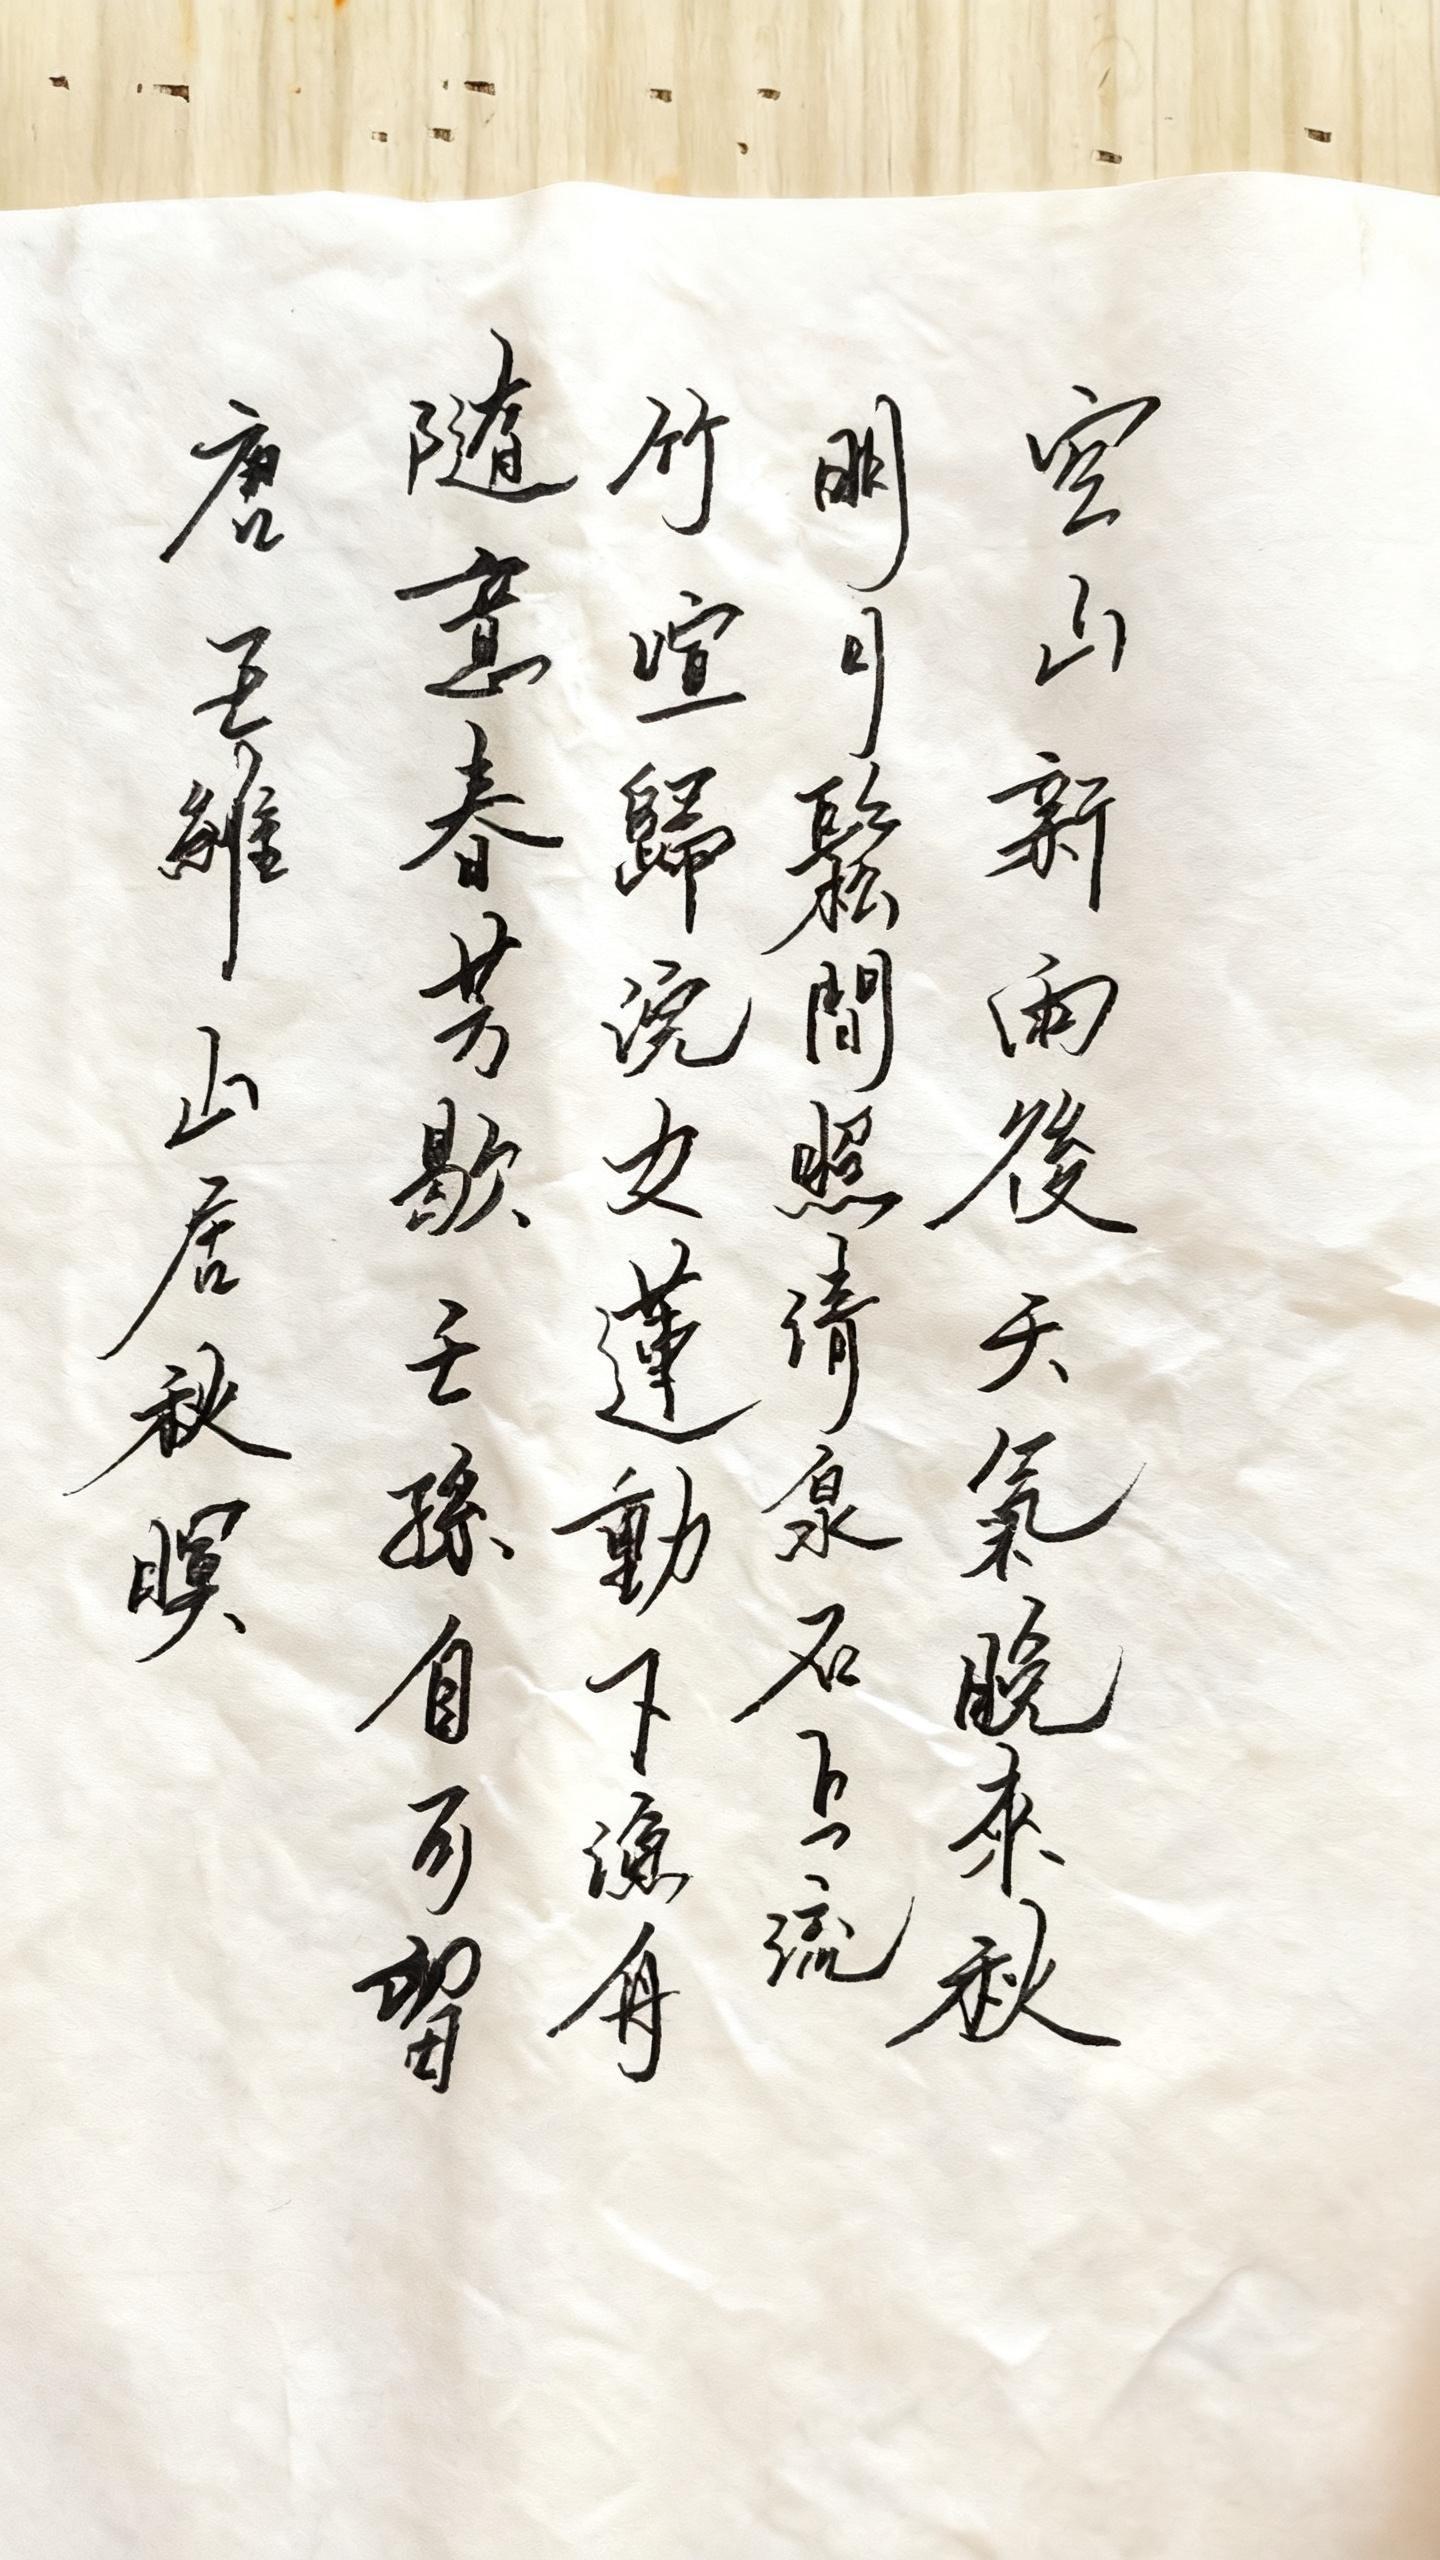 空山新雨後天氣晚來秋
明月鬆間照清泉石上流
竹喧歸浣女蓮動下漁舟
隨意春芳歇王孫自可留
唐王維山居秋暝